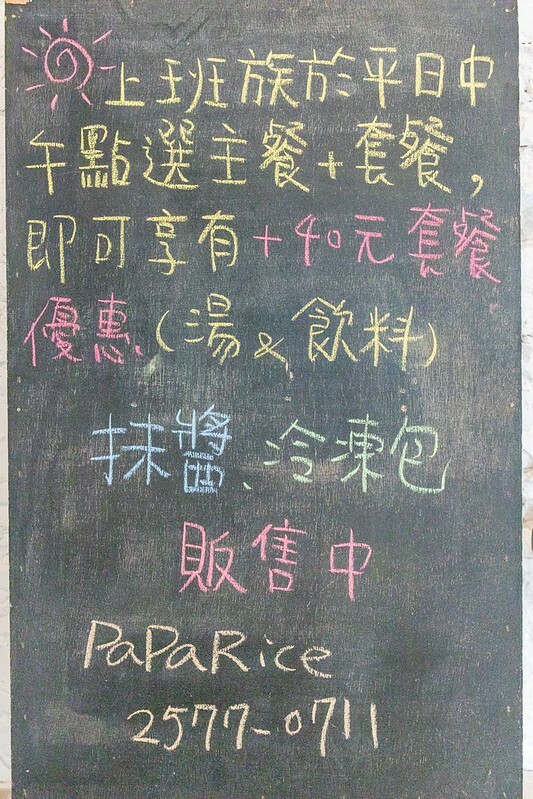 上班族於平日中
午點選主餐+套餐，
即可享有+40元套餐
優惠(湯&飲料)
抹醬、冷凍包
販售中
PaPaRice
2577-0711